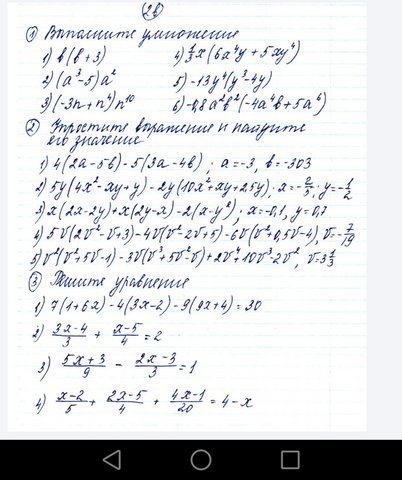 2в
① Выполните умножение
1) b(b+3)
2) (a³-5)a²
3) (-3n+n⁴)n¹⁰
4) ⅓x(6a⁴y+5xy⁴)
5) -13y⁴(y³-4y)
6) -0,8a²b²(-4a⁴b+5a⁶)
② Упростите выражение и найдите
его значение
1) 4(2a-5b)-5(3a-4b); a=-3, b=-303
2) 5y(4x²-xy+y)-2y(10x²+xy+25y); x=- ; y=-½
3) x(2x-2y)+x(2y-x)-2(x-y²); x=-0,1, y=0,7
4) 5v(2v²-v+3)-4v(v²-2v+5)-6v(v²+0,5v-4), v=-7/19
5) v²(v²+5v-1)-3v(v³+5v²-v)+2v⁴+10v³-2v², v=3⅓
③ Решите уравнение
1) 7(1+6x)-4(3x-2)-9(9x+4)=30
2) (3x-4)/3 + (x-5)/4 = 2
3) (5x+3)/9 - (2x-3)/3 = 1
4) (x-2)/5 + (2x-5)/4 + (4x-1)/20 = 4-x